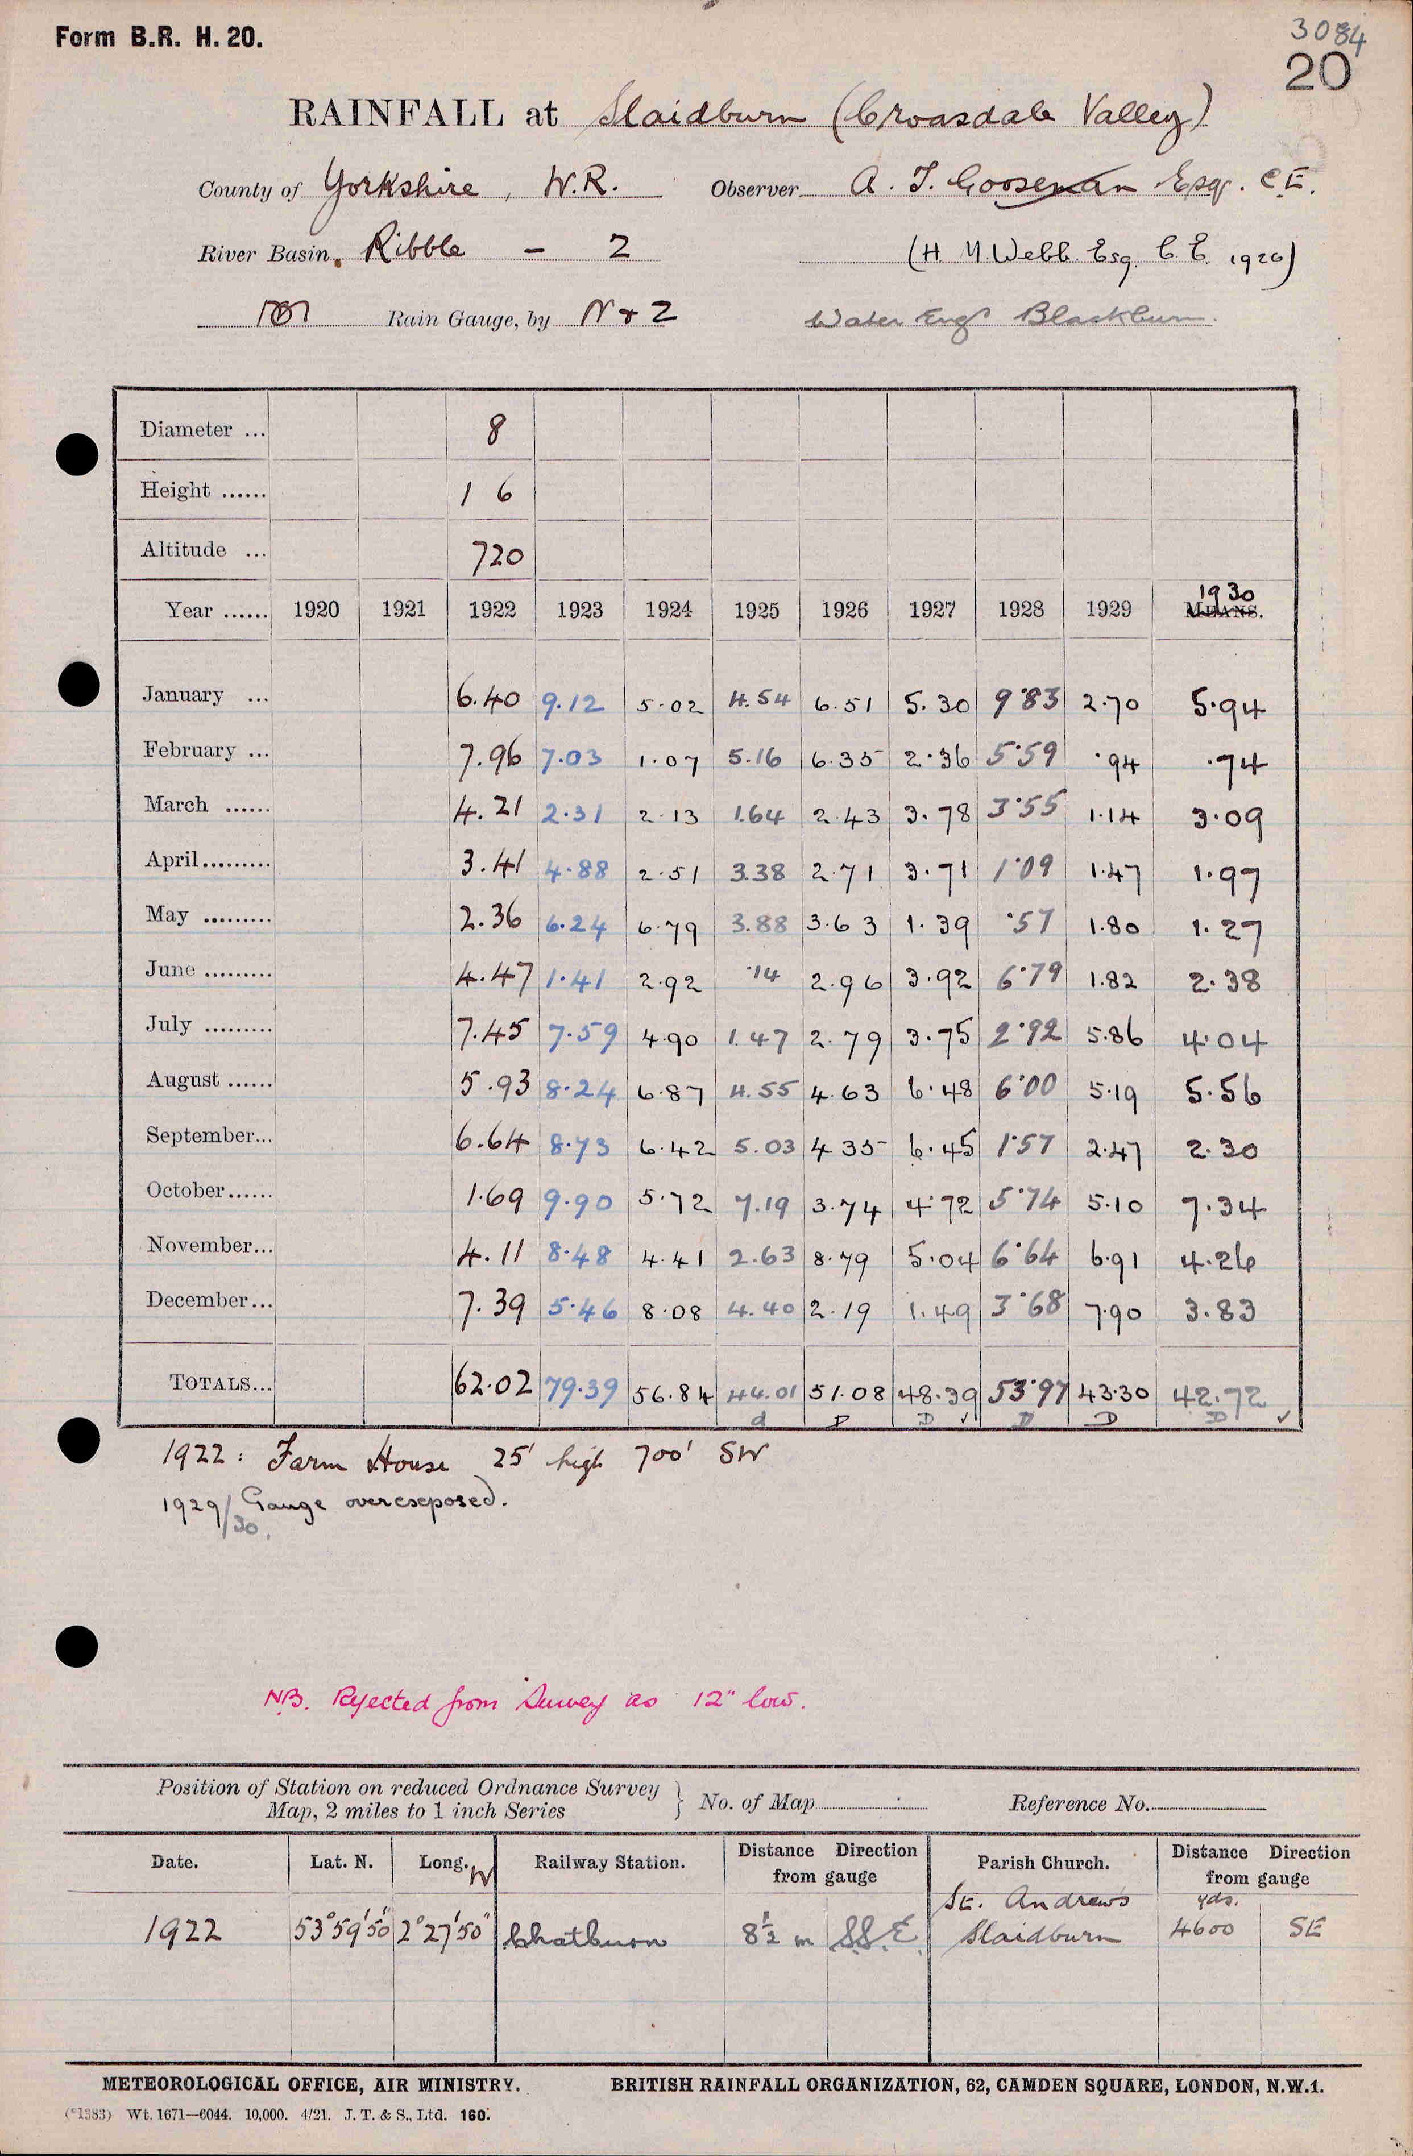 Form B.R. H. 20.
3084
20
RAINFALL at Slaidburn (Croasdale Valley)
County of Yorkshire, W.R. Observer A. T. Gooseman Esqr. C.E.
River Basin, Ribble - 2 (H. M Webb Esq. C.E. 1926)
Rain Gauge, by N & Z Water Engr Blackburn.
Diameter ... 8
Height ...... 1 6
Altitude ... 720
Year ...... 1920 1921 1922 1923 1924 1925 1926 1927 1928 1929 MEANS. 1930
January ... 6.40 9.12 5.02 4.54 6.51 5.30 9.83 2.70 5.94
February ... 7.96 7.03 1.07 5.16 6.35 2.36 5.59 .94 .74
March ...... 4.21 2.31 2.13 1.64 2.43 3.78 3.55 1.14 3.09
April ......... 3.41 4.88 2.51 3.38 2.71 3.71 1.09 1.47 1.97
May ......... 2.36 6.24 6.79 3.88 3.63 1.39 .57 1.80 1.27
June ......... 4.47 1.41 2.92 .14 2.96 3.92 6.79 1.82 2.38
July ......... 7.45 7.59 4.90 1.47 2.79 3.75 2.92 5.86 4.04
August ...... 5.93 8.24 6.87 4.55 4.63 6.48 6.00 5.19 5.56
September... 6.64 8.73 6.42 5.03 4.35 6.45 1.57 2.47 2.30
October...... 1.69 9.90 5.72 7.19 3.74 4.72 5.74 5.10 7.34
November... 4.11 8.48 4.41 2.63 8.79 5.04 6.64 6.91 4.26
December... 7.39 5.46 8.08 4.40 2.19 1.49 3.68 7.90 3.83
TOTALS... 62.02 79.39 56.84 44.01 51.08 48.39 53.97 43.30 42.72
d D D ✓ D D D ✓
1922: Farm House 25' high 700' SW
1929/30. Gauge overexposed.
NB. Rejected from Survey as 12" low.
Position of Station on reduced Ordnance Survey Map, 2 miles to 1 inch Series } No. of Map Reference No.
Date. Lat. N. Long. W Railway Station. Distance Direction from gauge Parish Church. Distance Direction from gauge
1922 53°59'50" 2°27'50" Chatburn 8½ m S.S.E. St. Andrews Slaidburn yds. 4600 SE
METEOROLOGICAL OFFICE, AIR MINISTRY. BRITISH RAINFALL ORGANIZATION, 62, CAMDEN SQUARE, LONDON, N.W.1.
(*1383) Wt. 1671—6044. 10,000. 4/21. J. T. & S., Ltd. 160.